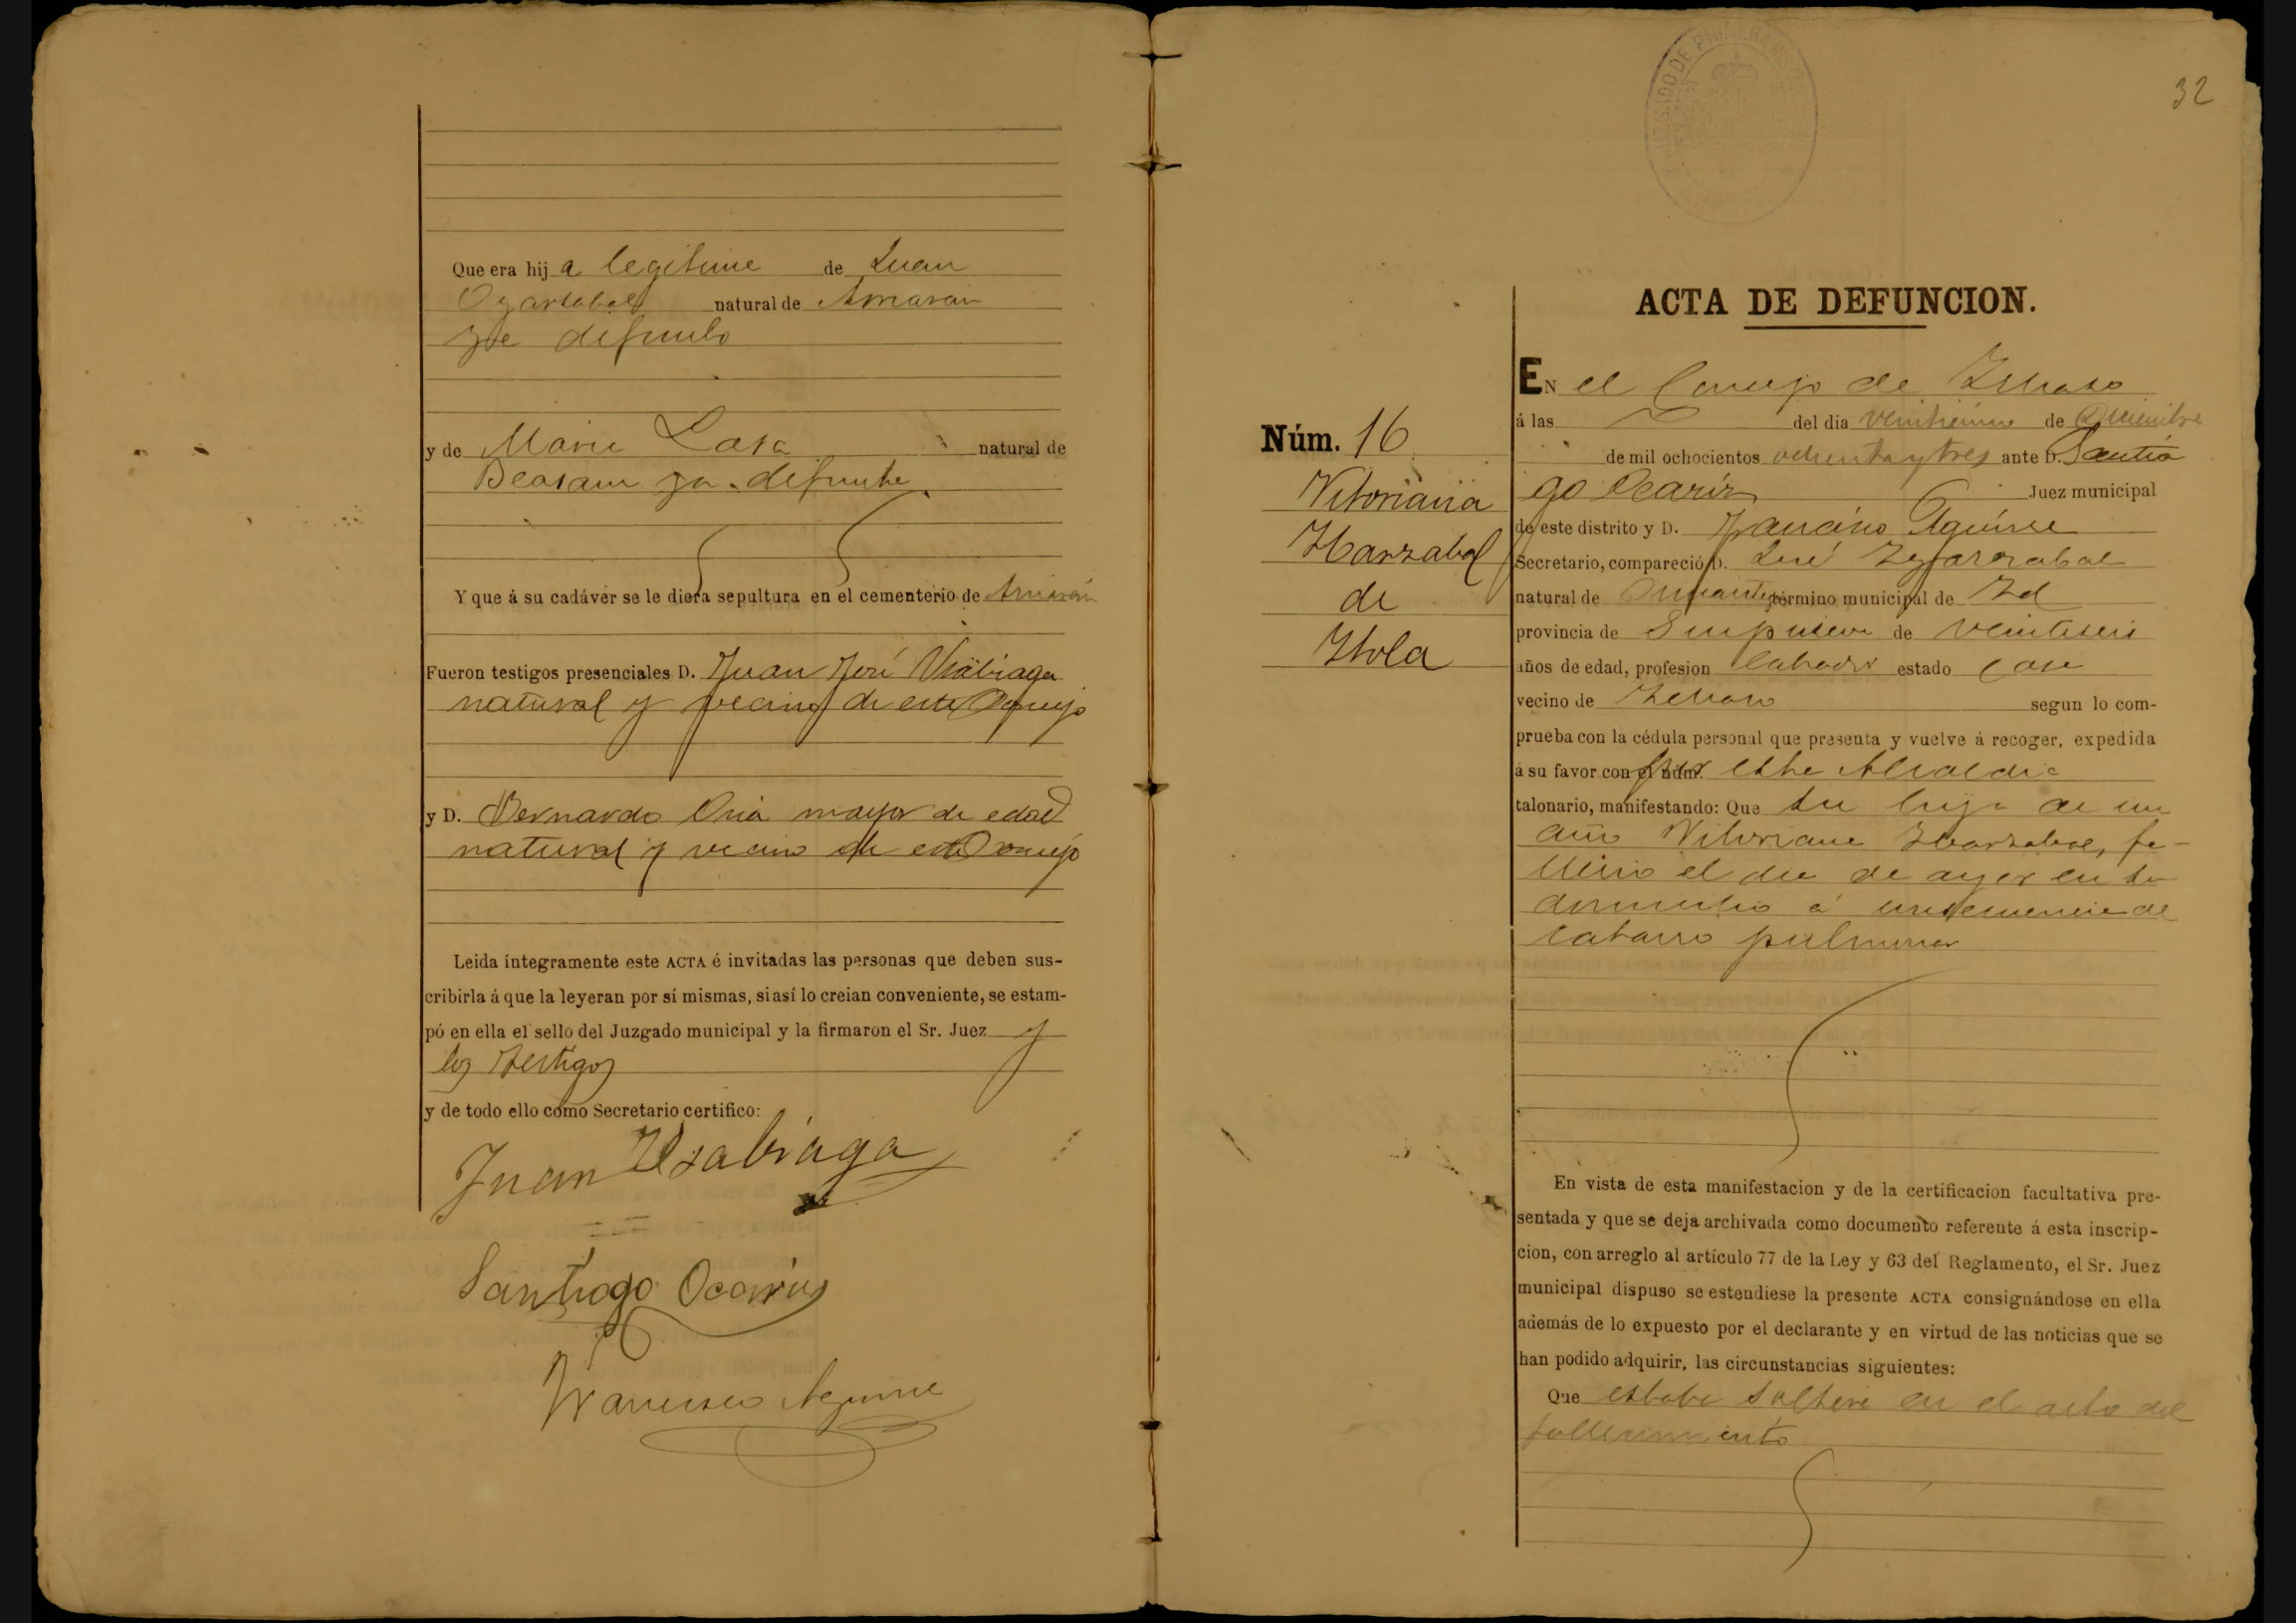 Que era hija legitime de Juan
natural de Amaran
ya defunto
y de Marie Lasa natural de
Beasain ya defunta
Y que á su cadáver se le diera sepultura en el cementerio de Amarán
Fueron testigos presenciales D. Juan José Usabiaga
natural y vecino de este Concejo
y D. Bernardo Oria mayor de edad
natural y vecino de este Concejo
Leida íntegramente este ACTA é invitadas las personas que deben sus-
cribirla á que la leyeran por sí mismas, si así lo creian conveniente, se estam-
pó en ella el sello del Juzgado municipal y la firmaron el Sr. Juez y
los testigos
y de todo ello como Secretario certifico:
Juan Usabiaga
Santiago Ocariz
Francisco Aguirre
JUZGADO DE PRIMERA
32
ACTA DE DEFUNCION.
Núm. 16
Vitoriana
de
EN el Concejo de
á las del dia veintinueve de Diciembre
de mil ochocientos ochenta y tres ante D. Santia
go Ocariz Juez municipal
de este distrito y D. Francisco Aguirre
Secretario, compareció D. José
natural de término municipal de Id
provincia de Guipuzcoa de veintiseis
años de edad, profesion labrador estado casa
vecino de segun lo com-
prueba con la cédula personal que presenta y vuelve á recoger, expedida
á su favor con el núm. por esta Alcaldia
talonario, manifestando: Que su hija de un
año Vitoriana fa-
llecio el dia de ayer en su
domicilio á consecuencia de
catarro pulmonar
En vista de esta manifestacion y de la certificacion facultativa pre-
sentada y que se deja archivada como documento referente á esta inscrip-
cion, con arreglo al artículo 77 de la Ley y 63 del Reglamento, el Sr. Juez
municipal dispuso se estendiese la presente ACTA consignándose en ella
además de lo expuesto por el declarante y en virtud de las noticias que se
han podido adquirir, las circunstancias siguientes:
Que estaba soltera en el acto del
fallecimiento